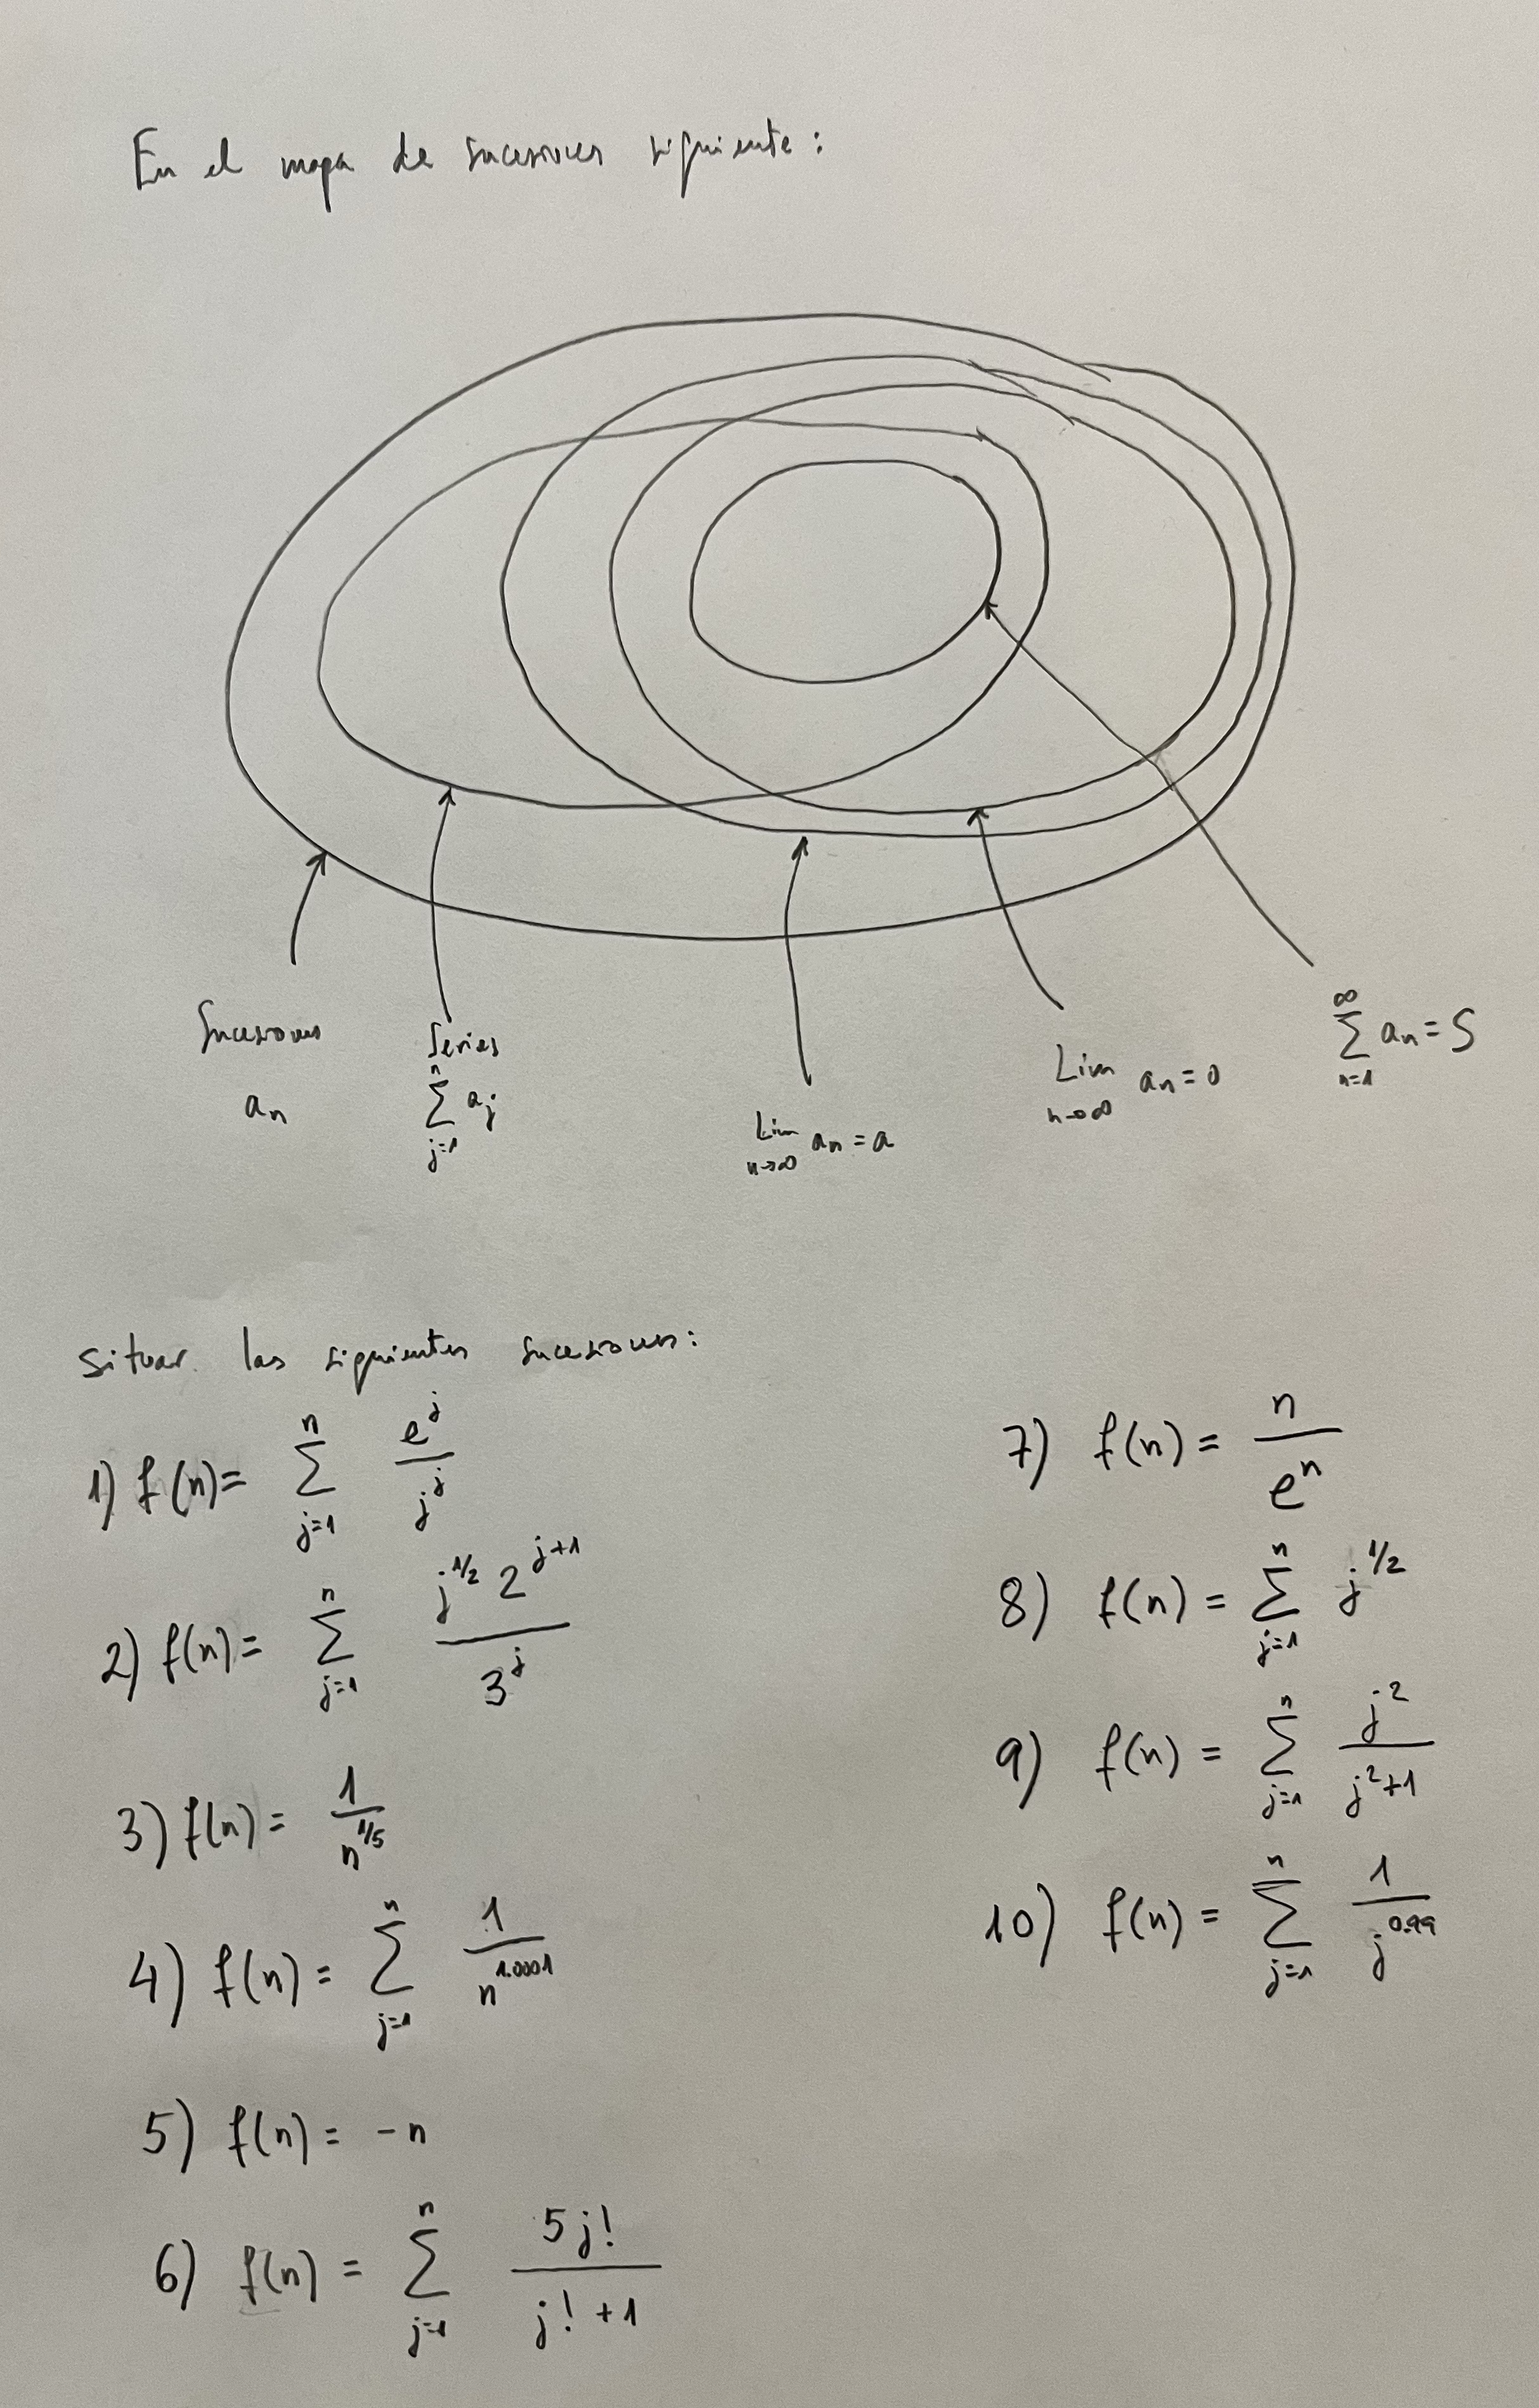 En el mapa de sucesiones siguiente:
Sucesiones
aₙ
Series
∑_{j=1}^{n} aⱼ
Lim_{n→∞} aₙ = a
Lim_{n→∞} aₙ = 0
∑_{n=1}^{∞} aₙ = S
Situar las siguientes sucesiones:
1) f(n) = ∑_{j=1}^{n} e^j / j^j
2) f(n) = ∑_{j=1}^{n} j^{1/2} 2^{j+1} / 3^j
3) f(n) = 1 / n^{1/5}
4) f(n) = ∑_{j=1}^{n} 1 / n^{1.0001}
5) f(n) = -n
6) f(n) = ∑_{j=1}^{n} 5j! / (j! + 1)
7) f(n) = n / e^n
8) f(n) = ∑_{j=1}^{n} j^{1/2}
9) f(n) = ∑_{j=1}^{n} j² / (j²+1)
10) f(n) = ∑_{j=1}^{n} 1 / j^{0.99}